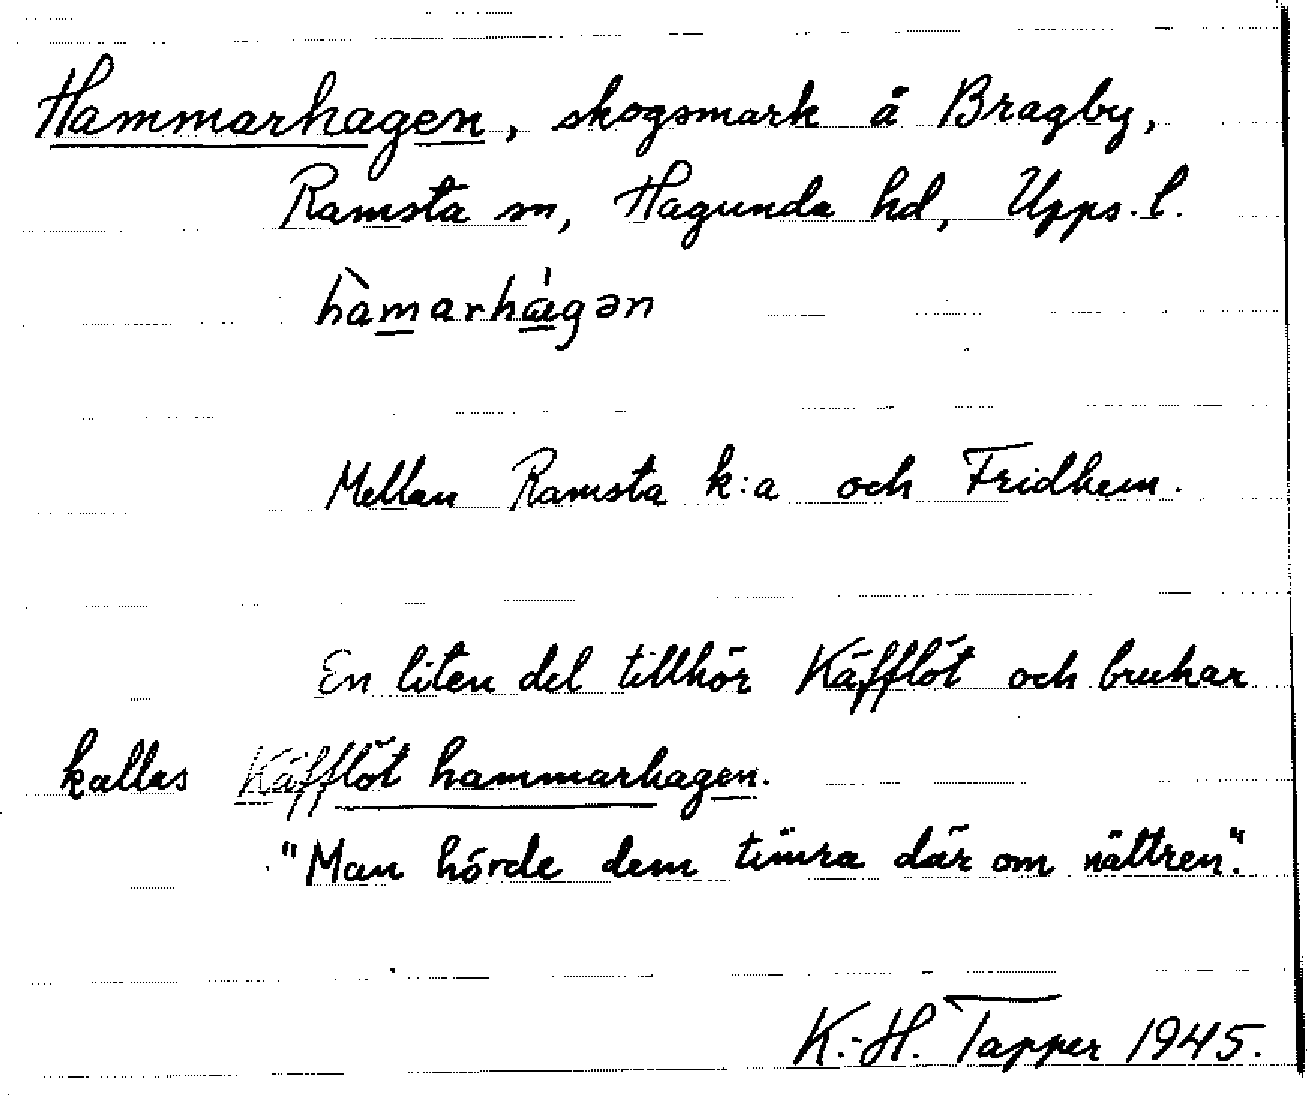 Hammarhagen, skogsmark å Bragby,
Ramsta sn, Hagunda hd, Upps. l.
hàmarhágən
Mellan Ramsta k:a och Fridhem.
En liten del tillhör Käfflöt och brukar
kallas Käfflöt hammarhagen.
"Man hörde dem timra där om nättren".
K.-H. Tapper 1945.